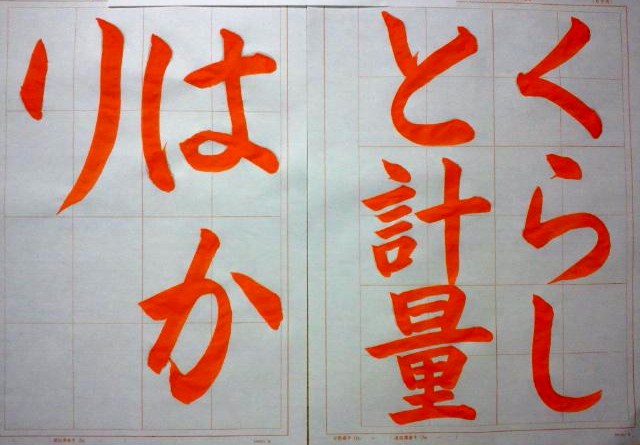 くらし
と計量
はか
り